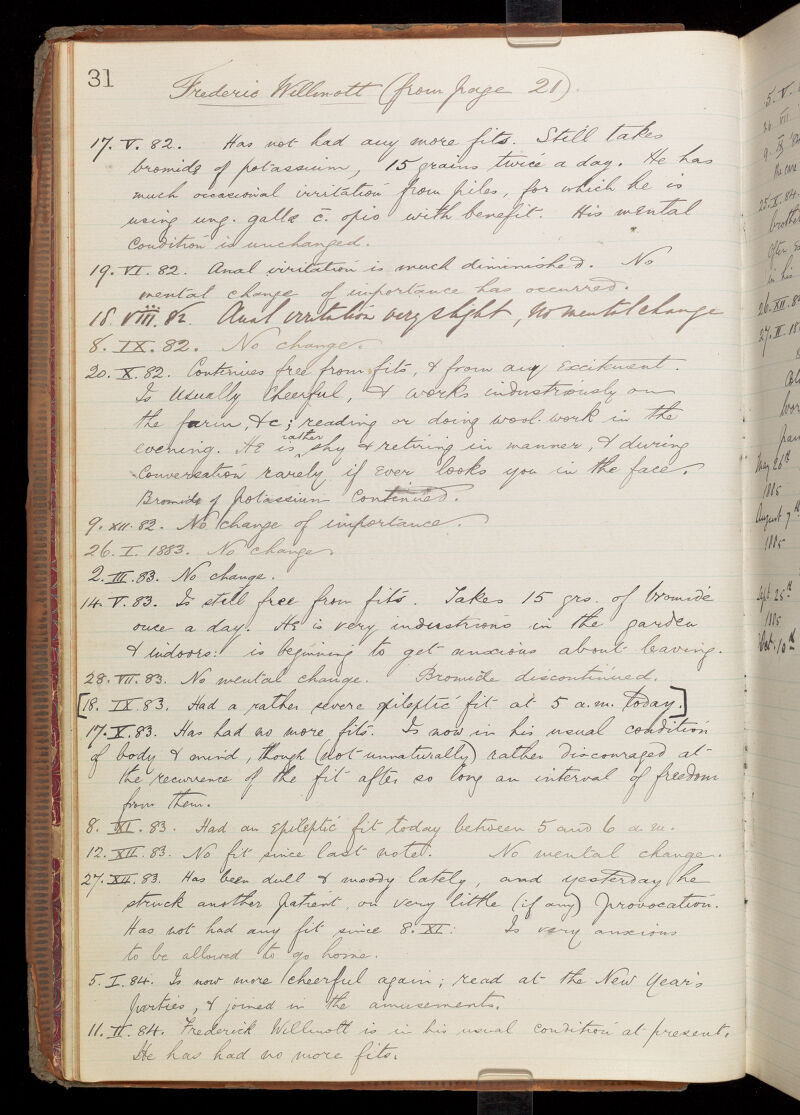 31
Frederic Willmott (from page 21).
17. V. 82. Has not had any more fits. Still takes
bromide of potassium, 15 grains twice a day. He has
much occasional irritation from piles, for which he is
using ung. gallæ c. opio with benefit. His mental
condition is unchanged.
19. VI. 82. Anal irritation is much diminished. No
mental change of importance has occurred.
18. VIII. 82. Anal irritation very slight, no mental change
8. IX. 82. No change.
20. X. 82. Continues free from fits, & from any excitement.
Is usually cheerful, & works industriously on
the farm, &c; reading or doing wool-work in the
evening. He is rather shy & retiring in manner, & during
conversation rarely, if ever looks you in the face.
Bromide of potassium continued.
9. XII. 82. No change of importance.
26. I. 1883. No change
2. III. 83. No change.
14. V. 83. Is still free from fits. Takes 15 grs. of bromide
once a day. He is very industrious in the garden
& indoors: is beginning to get anxious about leaving.
28. VII. 83. No mental change. Bromide discontinued.
[18. IX. 83. Had a rather severe epileptic fit at 5 a.m. today.]
17. X. 83. Has had no more fits. Is now in his usual condition
of body & mind, though (not unnaturally) rather discouraged at
the recurrence of the fit after so long an interval of freedom
from them.
8. XI. 83. Had an epileptic fit today between 5 and 6 a.m.
12. XII. 83. No fit since last note. No mental change.
27. XII. 83. Has been dull & moody lately, and yesterday he
struck another patient, on very little (if any) provocation.
Has not had any fit since 8. XI: Is very anxious
to be allowed to go home.
5. I. 84. Is now more cheerful again; read at the New Year's
parties, & joined in the amusements.
11. II. 84. Frederick Willmott is in his usual condition at present.
He has had no more fits.
5. V.
VII.
9. IX
25. X. 84.
brother
after
in his
26. XII. 84
27. II. 18
May 26th
1885
August 7th
1885
Sept. 25th
1885
Oct. 10th